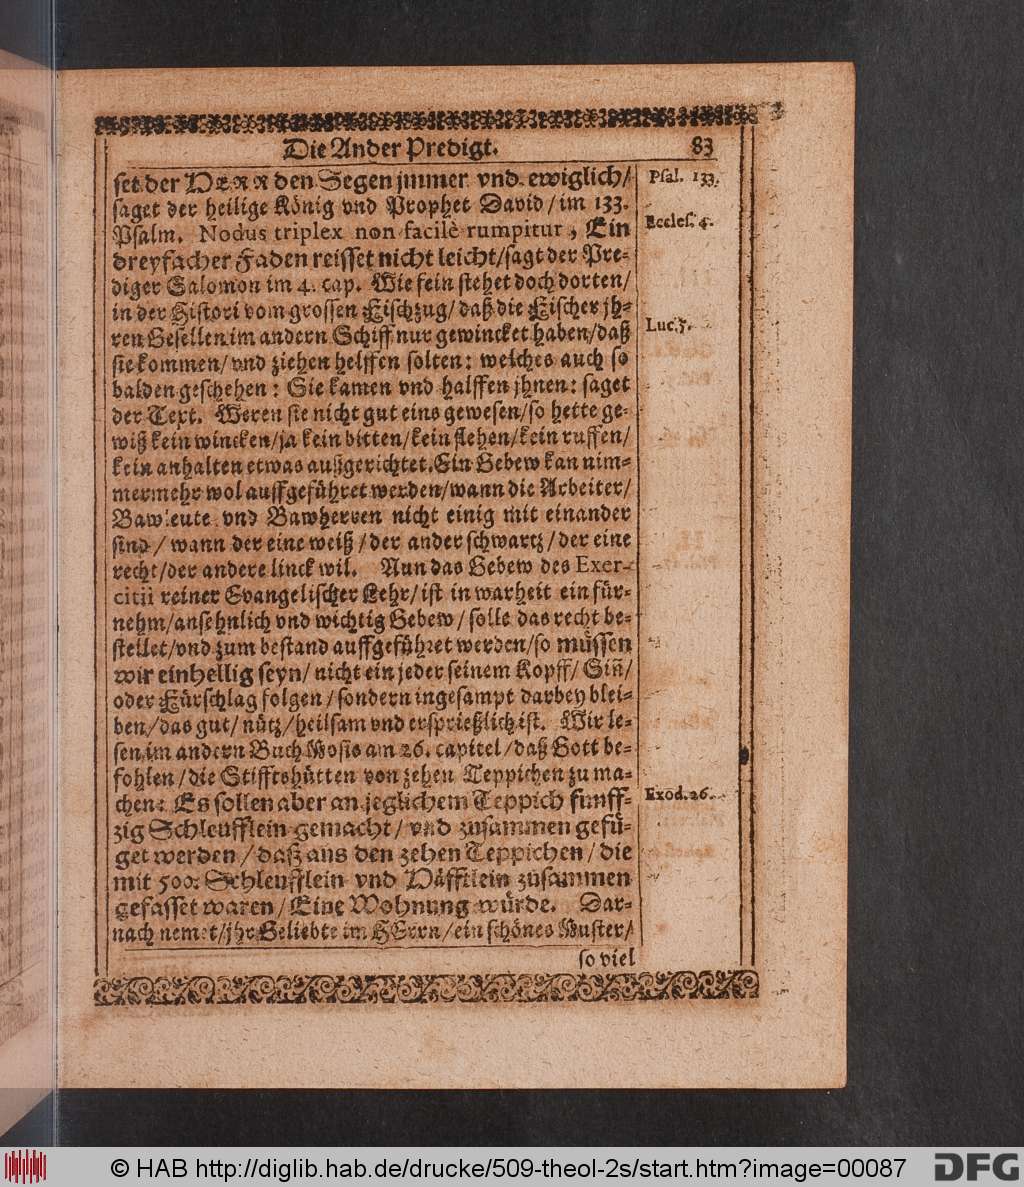 Die Ander Predigt. 83
set der HERR den Segen jmmer vnd ewiglich/
saget der heilige König vnd Prophet David/im 133.
Psalm. Nodus triplex non facilè rumpitur, Ein
dreyfacher Faden reisset nicht leicht/sagt der Pre-
diger Salomon im 4. cap. Wie fein stehet doch dorten/
in der Histori vom grossen Fischzug/daß die Fischer jh-
ren Gesellen im andern Schiff nur gewincket haben/daß
sie kommen/vnd ziehen helffen solten: welches auch so
balden geschehen: Sie kamen vnd halffen jhnen: saget
der Text. Weren sie nicht gut eins gewesen/so hette ge-
wiß kein wincken/ja kein bitten/kein flehen/kein ruffen/
kein anhalten etwas außgerichtet. Ein Gebew kan nim-
mermehr wol auffgeführet werden/wann die Arbeiter/
Bawleute vnd Bawherren nicht einig mit einander
sind/ wann der eine weiß/der ander schwartz/der eine
recht/der andere linck wil. Nun das Gebew des Exer-
citii reiner Evangelischer Lehr/ ist in warheit ein für-
nehm/ansehnlich vnd wichtig Gebew/ solle das recht be-
stellet/vnd zum bestand auffgeführet werden/so müssen
wir einhellig seyn/ nicht ein jeder seinem Kopff/ Siñ/
oder Fürschlag folgen/sondern ingesampt darbey blei-
ben/das gut/nütz/heilsam vnd ersprießlich ist. Wir le-
sen im andern Buch Mosis am 26. capitel/daß Gott be-
fohlen/die Stifftshütten von zehen Teppichen zu ma-
chen: Es sollen aber an jeglichem Teppich funff-
zig Schleufflein gemacht/ vnd zusammen gefü-
get werden/daß aus den zehen Teppichen/die
mit 500. Schleufflein vnd Häfftlein zusammen
gefasset waren/Eine Wohnung würde. Dar-
nach nemet/jhr Geliebte im HErrn/ein schönes Muster/
so viel
Psal. 133.
Eccles. 4.
Luc. 5.
Exod. 26.
© HAB http://diglib.hab.de/drucke/509-theol-2s/start.htm?image=00087
DFG